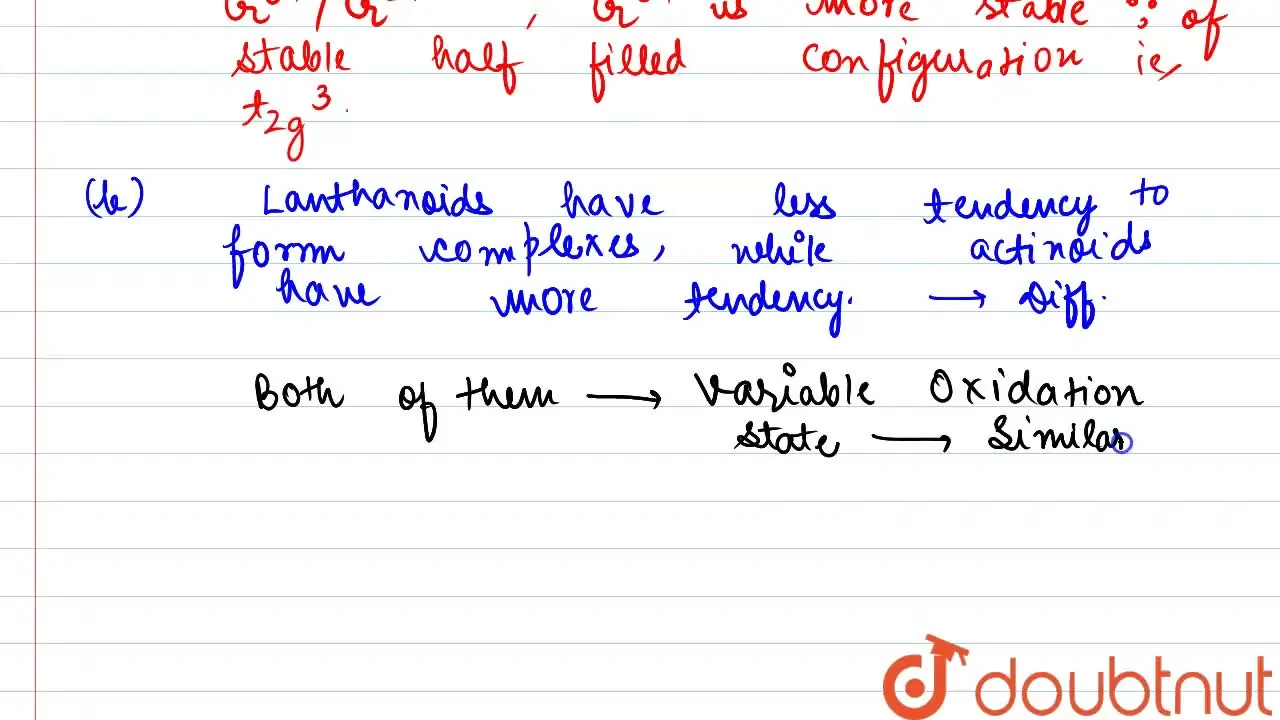 Cr³⁺/Cr²⁺, Cr³⁺ is more stable ∵ of
stable half filled configuration ie,
t₂g³.
(b) Lanthanoids have less tendency to
form complexes, while actinoids
have more tendency. → Diff.
Both of them → Variable Oxidation
state → Similar
doubtnut